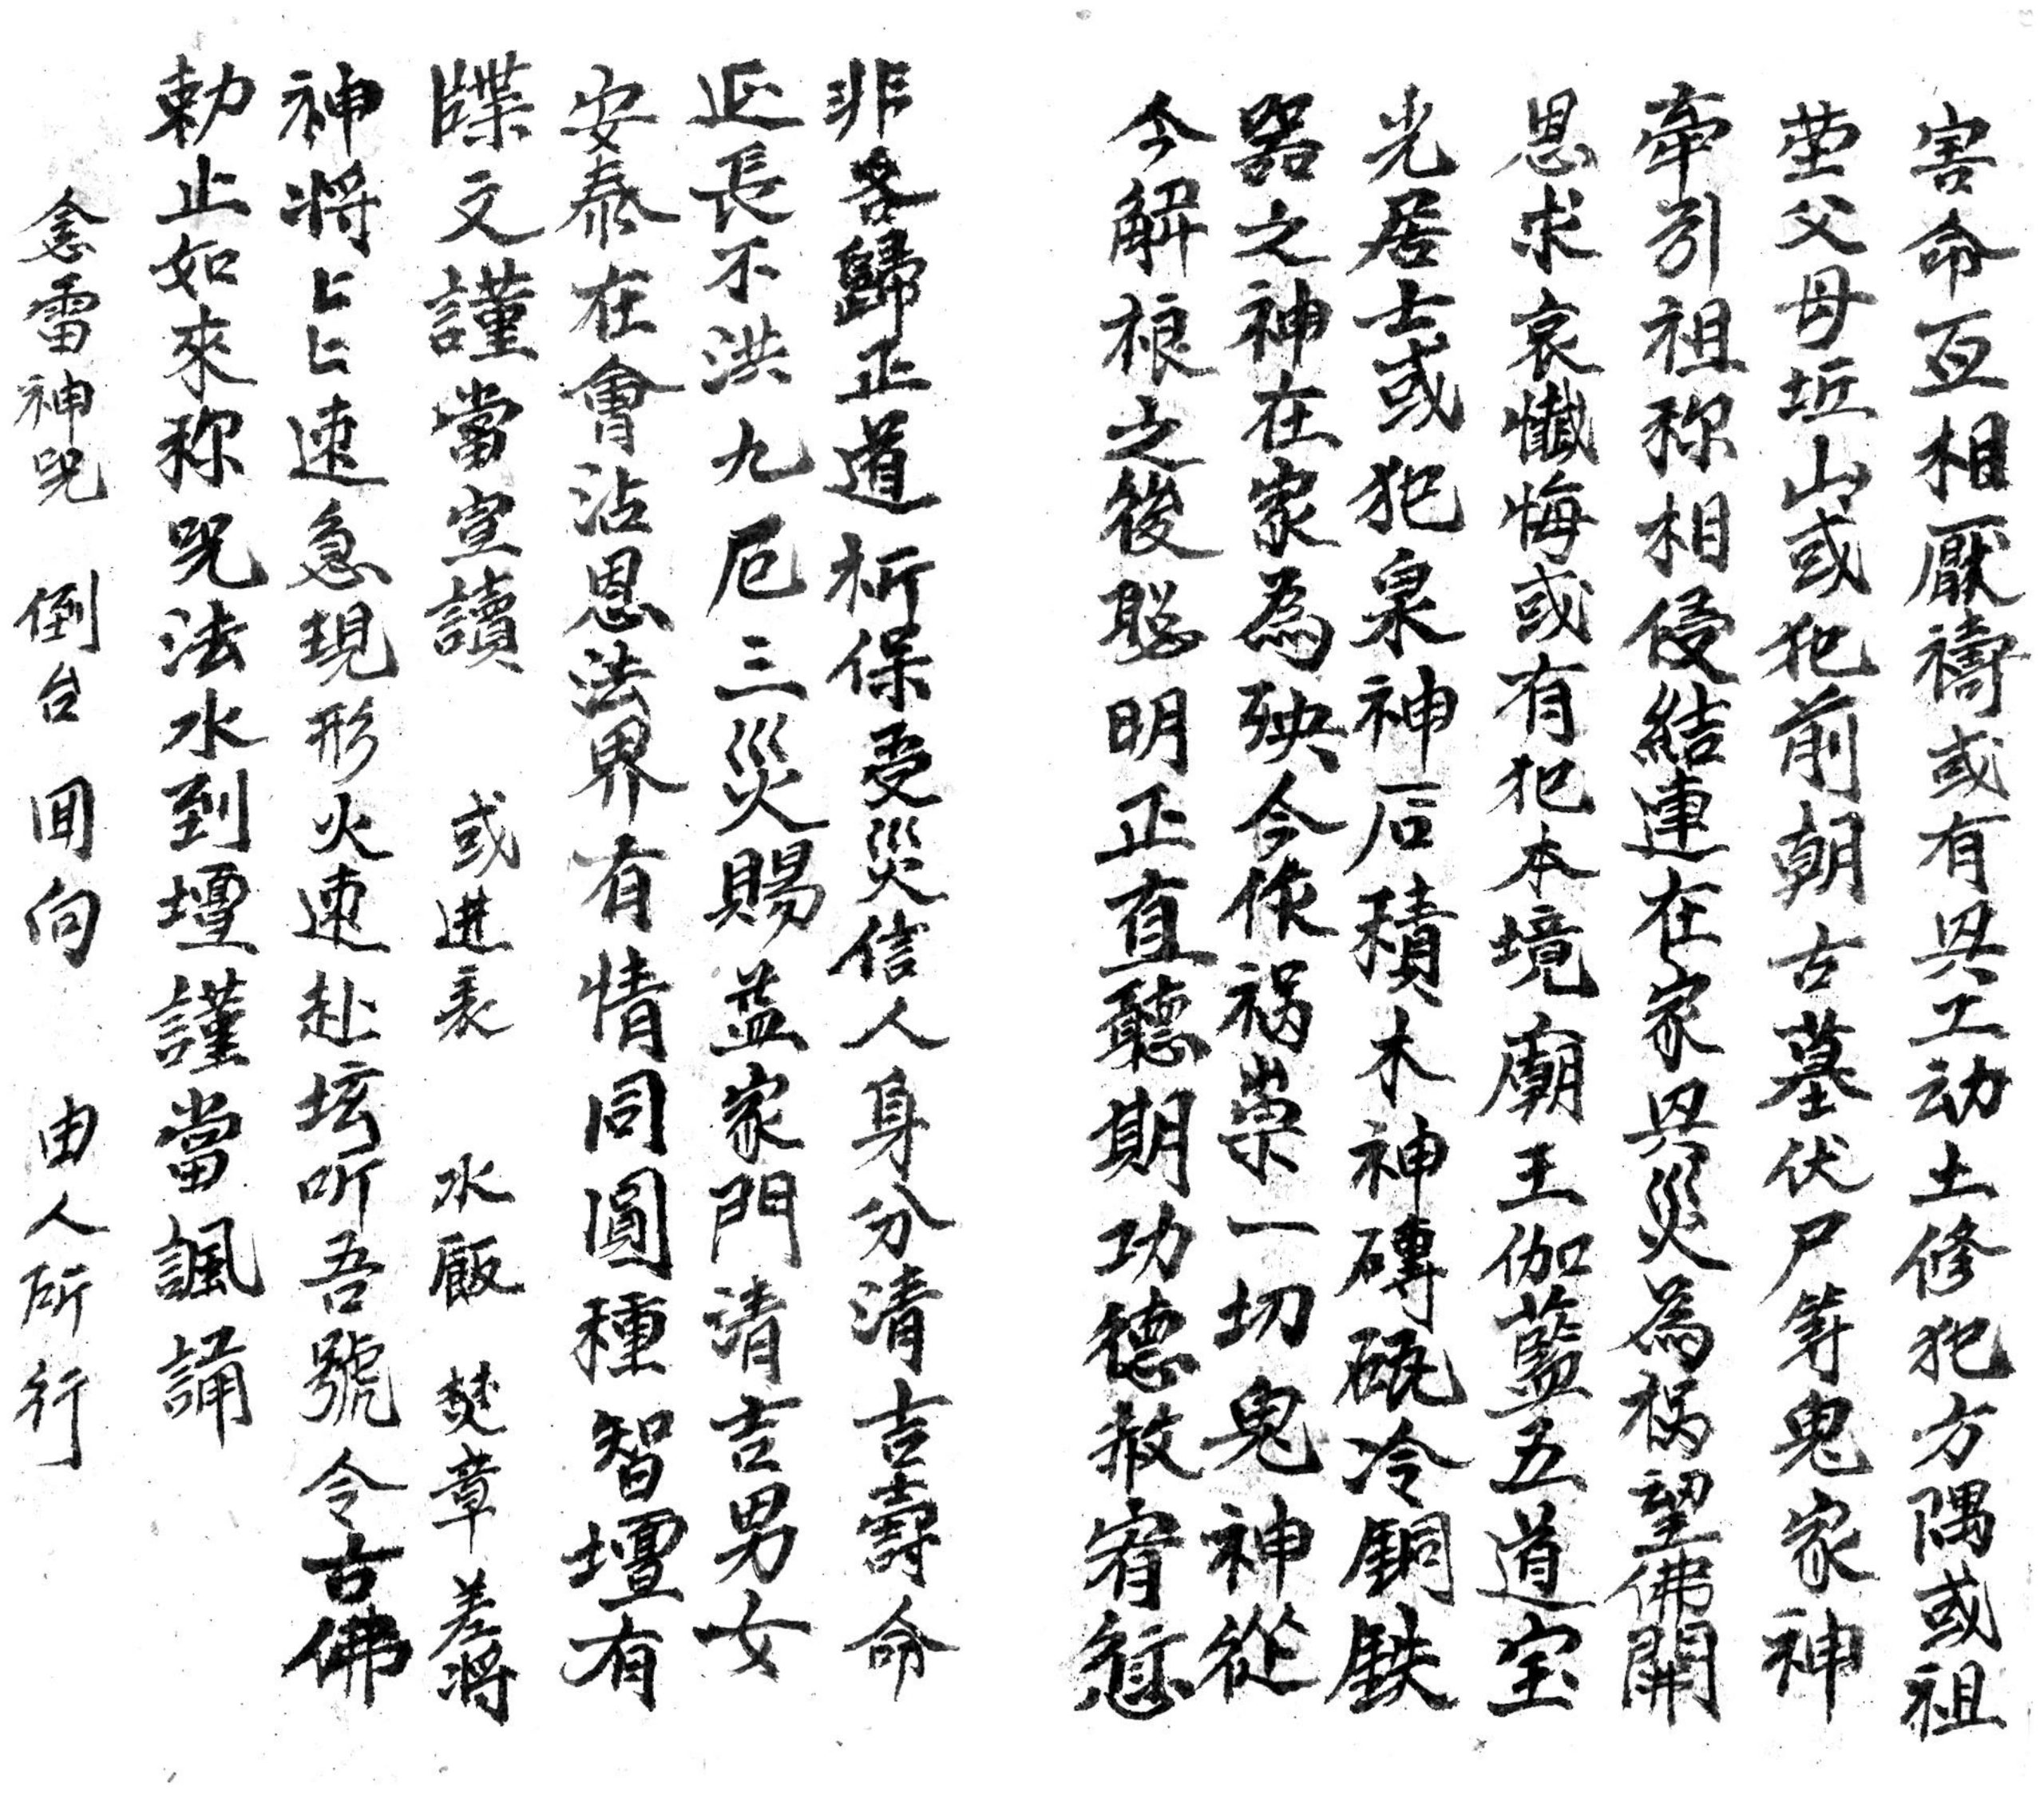 害命互相厭禱或有異工动土修犯方隅或祖
茔父母坵山或犯前朝古墓伏尸等鬼家神
牽引祖称相侵結連在家異災為祸望佛開
恩求哀懺悔或有犯本境廟王伽藍五道宝
光居士或犯泉神后積木神磚砙冷銅鉄
器之神在家為殃今作祸祟一切鬼神從
今解禳之後聡明正直聽期功德赦宥愆
非各歸正道祈保受災信人身分清吉壽命
延長不洪九厄三災賜益家門清吉男女
安泰在會沾恩法界有情同圓種智壇有
牒文謹當宣讀 或进表 水厰 焚章差将
神将匕匕速急現形火速赴坛听吾號令古佛
勅止如來称咒法水到壇謹當諷誦
念雷神咒 倒台 囬向 由人所行